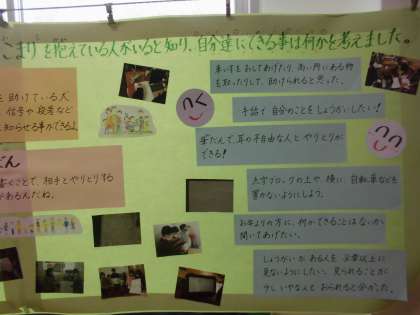 こまりを抱えている人がいると知り、自分達にできる事は何かを考えました。
車いすをおしてあげたり、高い所にある物
を取ったりして、助けられると思った。
を助けている犬
信号や段差など
知らせる事ができるよ
手話で自分のことをしょうかいしたい!
筆だんで、耳の不自由な人とやりとりが
できる!
だん
書くことで、相手とやりとりする
があるんだね。
点字ブロックの上や横に、自転車などを
置かないようにしよう。
お年よりの方に、何かできることはないか
聞いてあげたい。
しょうがいがある人を必要以上に
見ないようにしたい。見られることが
少しいやな人も おられると分かった。